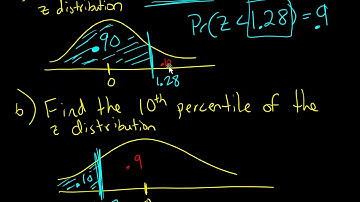 z distribution
Pr(Z < 1.28) = .9
.90
.10
0
1.28
b) Find the 10th percentile of the
z distribution
.9
.10